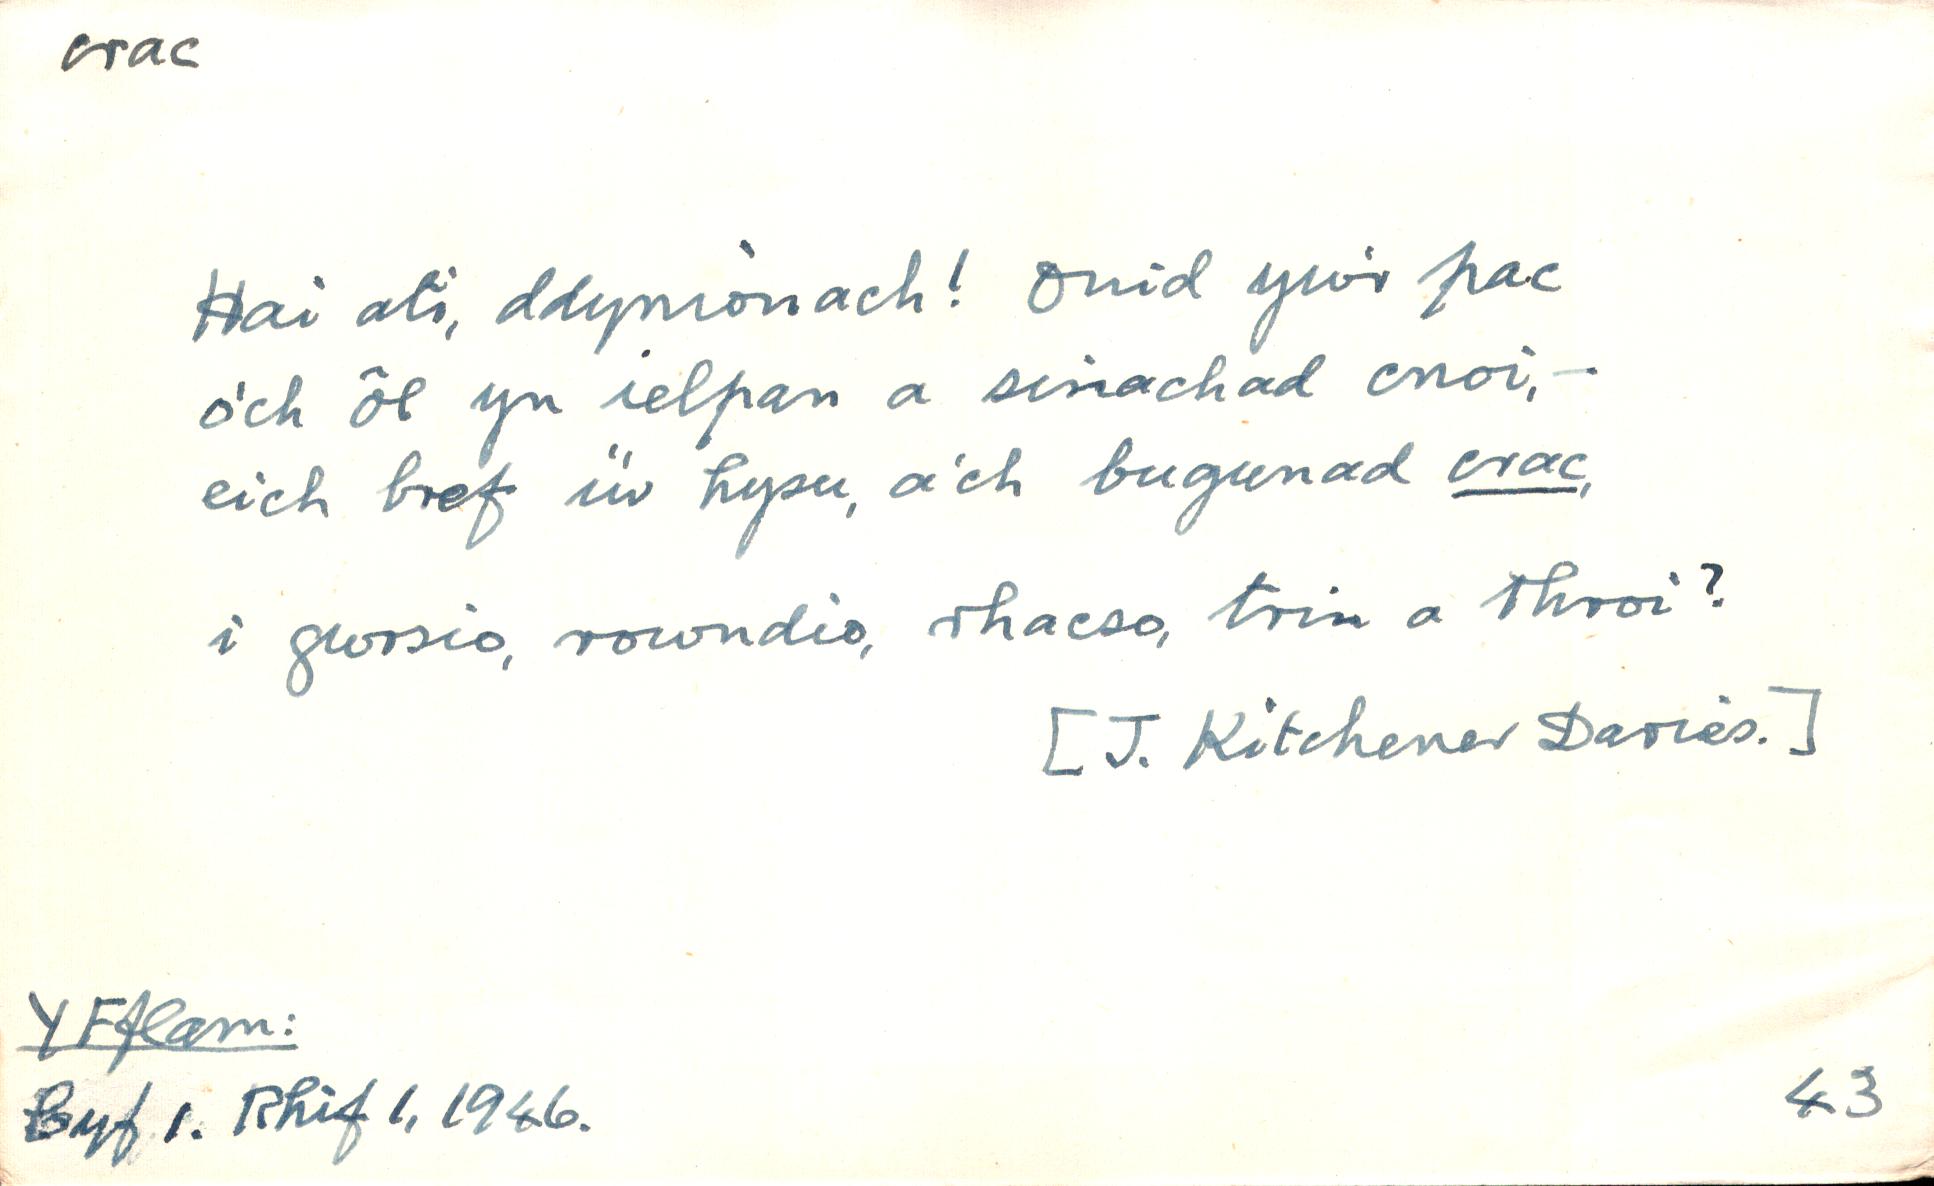 crac
Hai ati, ddynionach! Onid yw'r pac
o'ch ôl yn ielpan a sinachad cnoi,—
eich bref i'w hysu, a'ch bugunad crac,
i gworsio, rowndio, rhacso, trin a throi?
[J. Kitchener Davies.]
Y Fflam:
Cyf 1. Rhif 1, 1946.
43